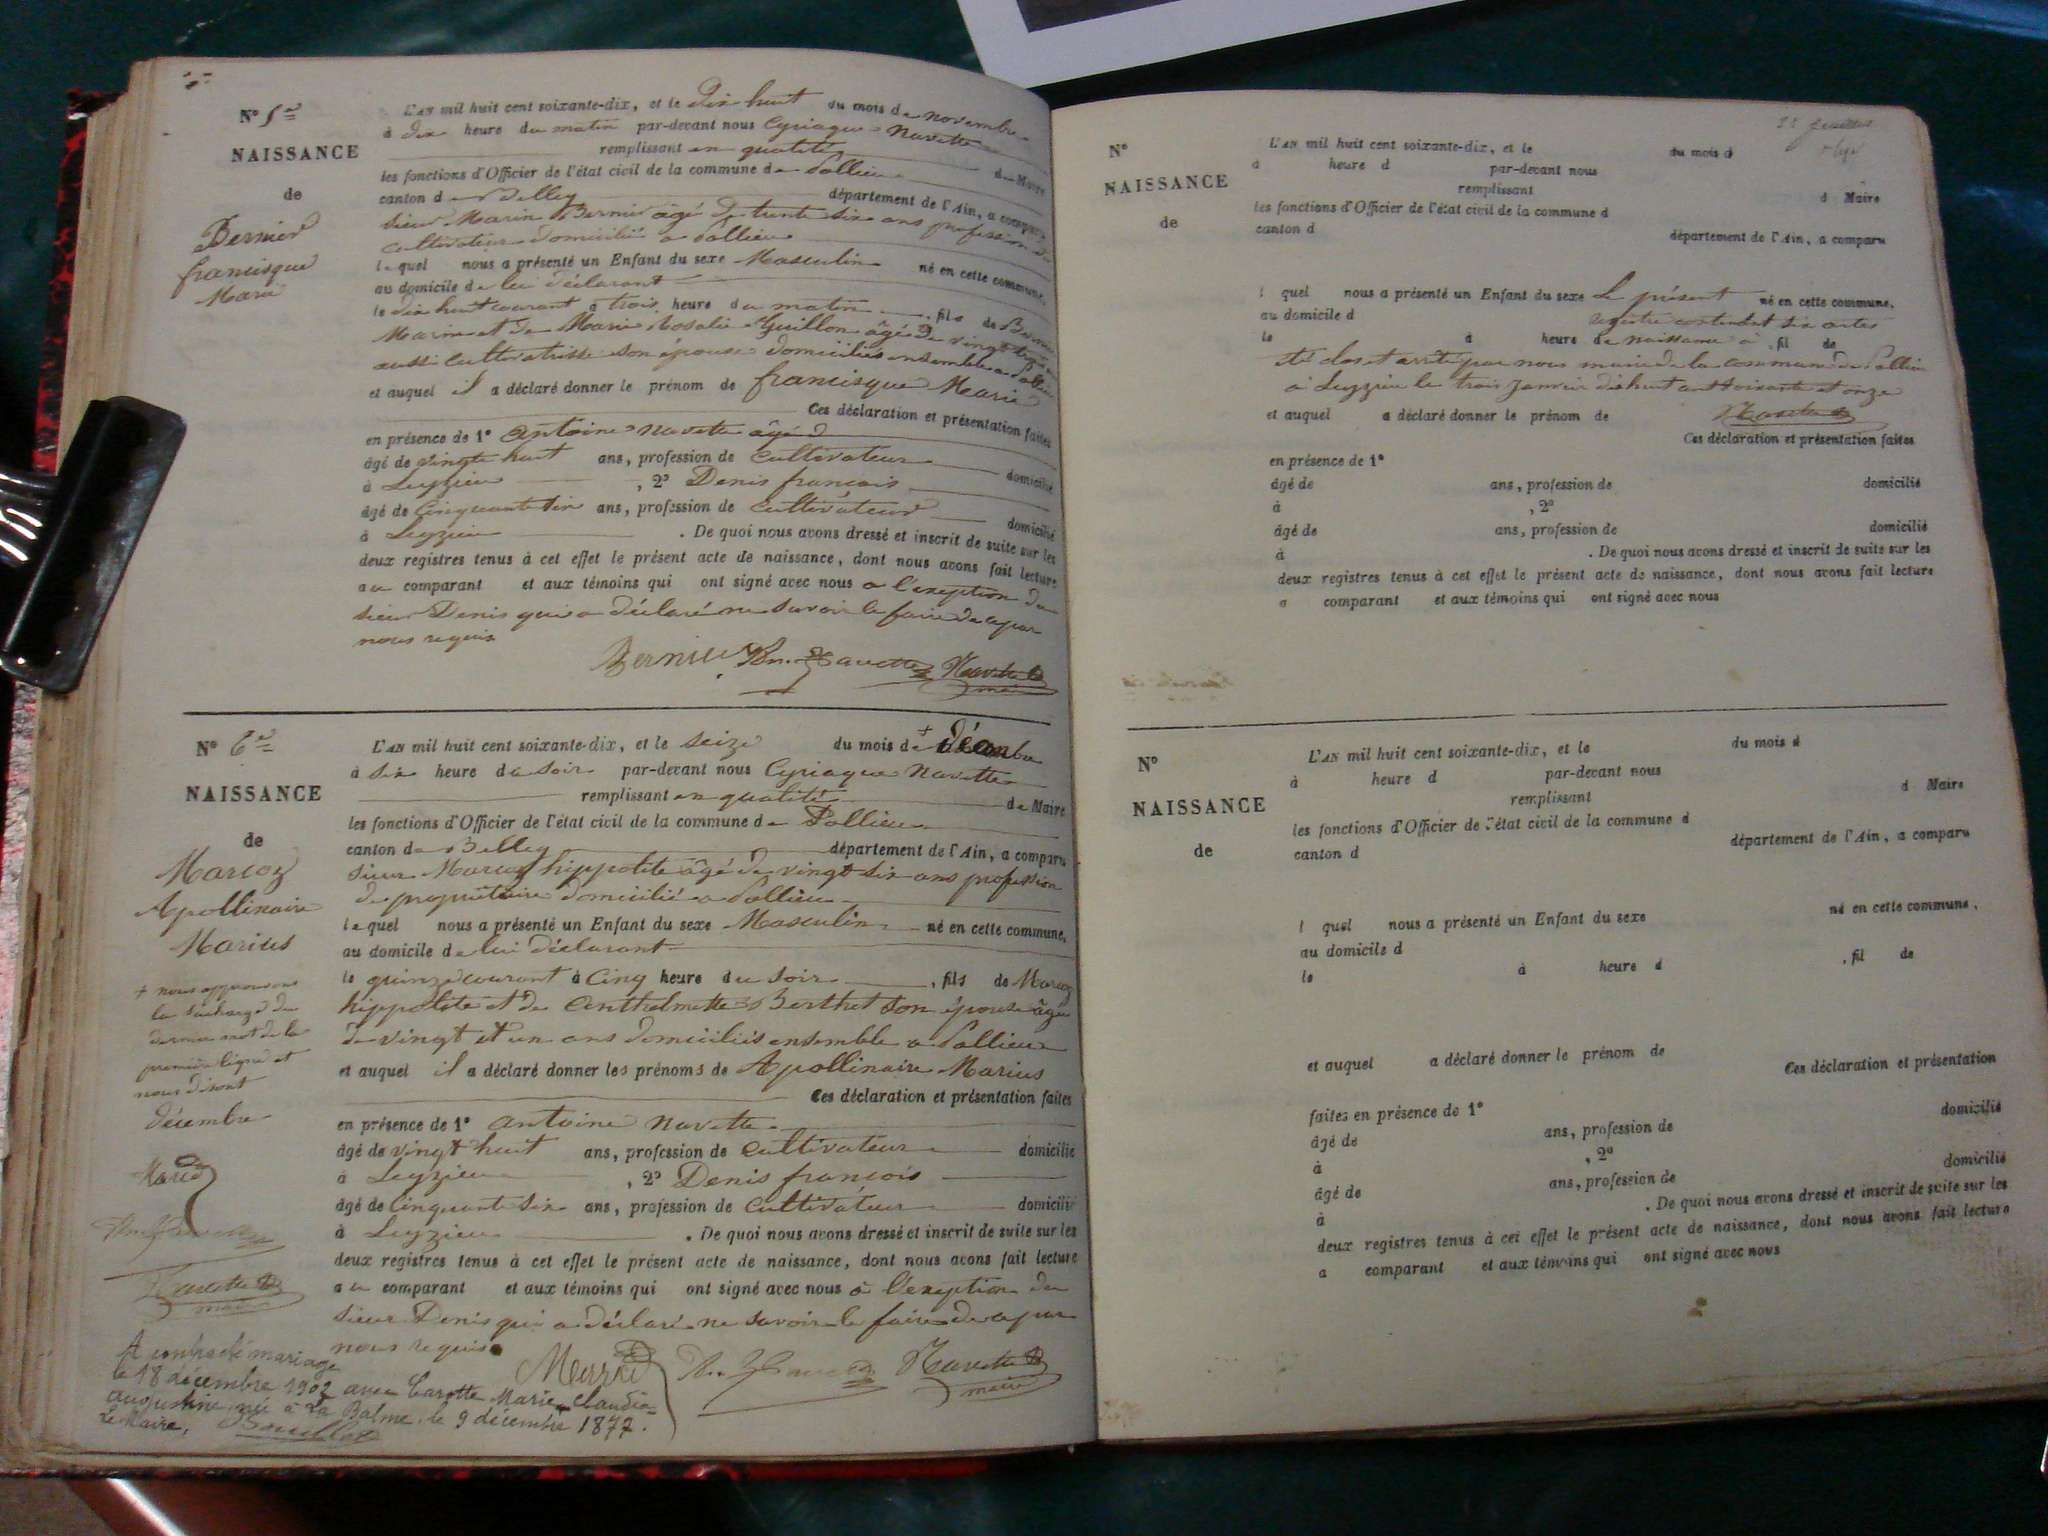 N° 5e
NAISSANCE
de
Bernier
francisque
Marie
L'AN mil huit cent soixante-dix, et le dix huit du mois de novembre
à dix heure du matin par-devant nous Cyriaque Navette
remplissant en qualité de Maire
les fonctions d'Officier de l'état civil de la commune de Pollieu
canton de Belley département de l'Ain, a comparu
sieur Marin Bernier âgé de trente six ans profession de
cultivateur domicilié a Pollieu
lequel nous a présenté un Enfant du sexe Masculin né en cette commune,
au domicile de lui déclarant
le dix huit courant à trois heure du matin, fils de Bernier
Marin et de Marie Rosalie Guillon âgé de vingt
aussi cultivatrisse son épouse domiciliés ensemble a Pollieu
et auquel il a déclaré donner le prénom de francisque Marie
Ces déclaration et présentation faites
en présence de 1° antoine navette âgé d
âgé de vingte huit ans, profession de cultivateur domicilié
à Leyzieu, 2° Denis francois
âgé de Cinquante six ans, profession de cultivateur domicilié
à Leyzieu. De quoi nous avons dressé et inscrit de suite sur les
deux registres tenus à cet effet le présent acte de naissance, dont nous avons fait lecture
au comparant et aux témoins qui ont signé avec nous a l'exeption du
sieur Denis qui a déclaré ne savoir le faire de ce par
nous requis
Bernier Navette Navette
maire
N° 6e
NAISSANCE
de
Marcoz
Apollinaire
Marius
+ nous approuvons
la surcharge du
dernier mot de la
première ligne et
nous disont
décembre
Navette
maire
L'AN mil huit cent soixante-dix, et le seize du mois de + décembre
à six heure du soir par-devant nous Cyriaque Navette
remplissant en qualité de Maire
les fonctions d'Officier de l'état civil de la commune de Pollieu
canton de Belley département de l'Ain, a comparu
sieur Marcoz hippolite âgé de vingt six ans profession
de propriétaire domicilié a Pollieu
lequel nous a présenté un Enfant du sexe Masculin né en cette commune,
au domicile de lui déclarant
le quinze courant à Cinq heure du soir, fils de Marcoz
hippolite et de Anthelmette Berthet son épouse âgée
de vingt et un ans domiciliés ensemble a Pollieu
et auquel il a déclaré donner les prénoms de Apollinaire Marius
Ces déclaration et présentation faites
en présence de 1° antoine navette
âgé de vingt huit ans, profession de cultivateur domicilié
à Leyzieu, 2° Denis francois
âgé de Cinquante six ans, profession de cultivateur domicilié
à Leyzieu. De quoi nous avons dressé et inscrit de suite sur les
deux registres tenus à cet effet le présent acte de naissance, dont nous avons fait lecture
au comparant et aux témoins qui ont signé avec nous à l'exeption du
sieur Denis qui a déclaré ne savoir le faire de ce par
nous requis
Navette
maire
A contracté mariage
le 18 décembre 1902 avec Carotte Marie Claudia
augustine née à La Balme le 9 décembre 1877.
Le Maire,
feuilles
N°
NAISSANCE
de
L'AN mil huit cent soixante-dix, et le du mois d
à heure d par-devant nous
remplissant d Maire
les fonctions d'Officier de l'état civil de la commune d
canton d département de l'Ain, a comparu
l quel nous a présenté un Enfant du sexe Le présent né en cette commune,
au domicile d registre contenant six actes
le à heure de naissance a, fil de
été clos et arrêté par nous maire de la commune de Pollieu
a Leyzieu le trois Janvier dishuit cent soixante et onze
et auquel a déclaré donner le prénom de Navette
Ces déclaration et présentation faites
en présence de 1°
âgé de ans, profession de domicilié
à, 2°
âgé de ans, profession de domicilié
à. De quoi nous avons dressé et inscrit de suite sur les
deux registres tenus à cet effet le présent acte de naissance, dont nous avons fait lecture
a comparant et aux témoins qui ont signé avec nous
N°
NAISSANCE
de
L'AN mil huit cent soixante-dix, et le du mois d
à heure d par-devant nous
remplissant d Maire
les fonctions d'Officier de l'état civil de la commune d
canton d département de l'Ain, a comparu
l quel nous a présenté un Enfant du sexe né en cette commune,
au domicile d
le à heure d, fil de
et auquel a déclaré donner le prénom de
Ces déclaration et présentation
faites en présence de 1°
âgé de ans, profession de domicilié
à, 2°
âgé de ans, profession de domicilié
à. De quoi nous avons dressé et inscrit de suite sur les
deux registres tenus à cet effet le présent acte de naissance, dont nous avons fait lecture
a comparant et aux témoins qui ont signé avec nous